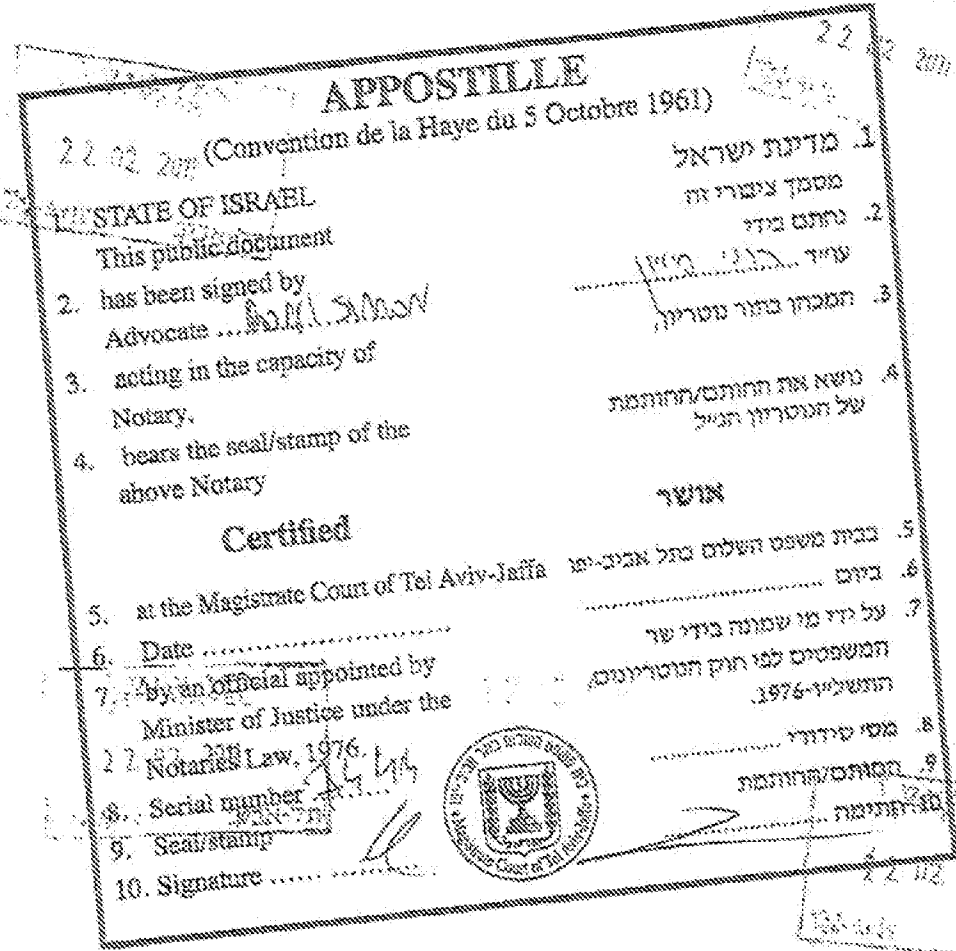 APPOSTILLE
(Convention de la Haye du 5 Octobre 1961)
22 02 2011
1. STATE OF ISRAEL
This public document
2. has been signed by
Advocate ...
3. acting in the capacity of
Notary.
4. bears the seal/stamp of the
above Notary
Certified
5. at the Magistrate Court of Tel Aviv-Jaffa
6. Date ..............................
7. by an official appointed by
Minister of Justice under the
Notaries Law, 1976.
8. Serial number
9. Seal/stamp
10. Signature ......
1. מדינת ישראל
מסמך ציבורי זה
2. נחתם בידי
עו״ד
3. המכהן בתור נוטריון,
4. נושא את החותם/החותמת
של הנוטריון הנ״ל
אושר
5. בבית משפט השלום בתל אביב-יפו
6. ביום ..............................
7. על ידי מי שמונה בידי שר
המשפטים לפי חוק הנוטריונים,
התשל״ו-1976.
8. מס׳ סידורי ....................
9. החותם/החותמת
10. חתימה ....................
Magistrate Court of Tel Aviv-Jaffa
22 02